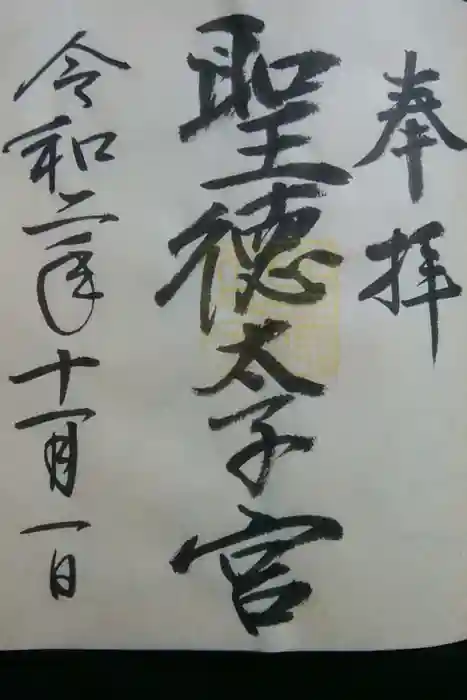 奉拝
聖徳太子宮
令和二年十一月一日